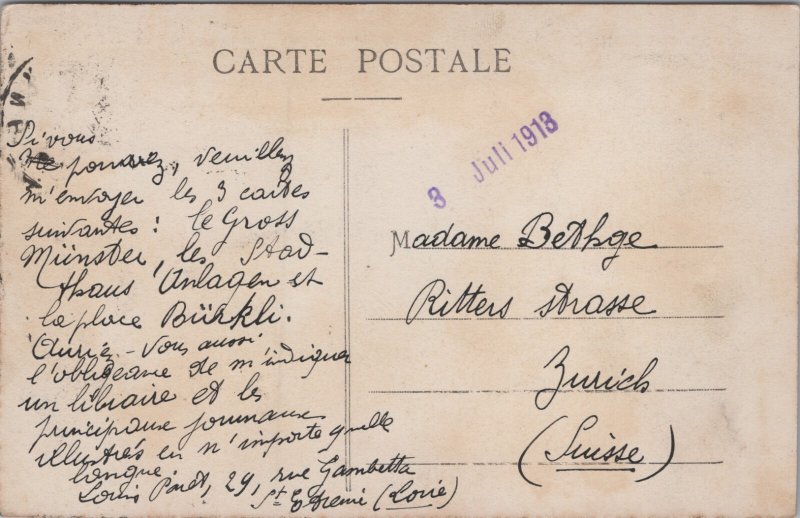 CARTE POSTALE
3 Juli 1913
Si vous
me pouvez, veuillez
m'envoyer les 3 cartes
suivantes : le Gross
Münster, les Stad-
thaus Anlagen et
la place Bürkli.
Auriez-vous aussi
l'obligeance de m'indiquer
un libraire et les
principaux journaux
illustrés en n'importe quelle
langue.
Louis 29, rue Gambetta
St Etienne (Loire)
Madame Bethge
Ritters strasse
Zurich
(Suisse)